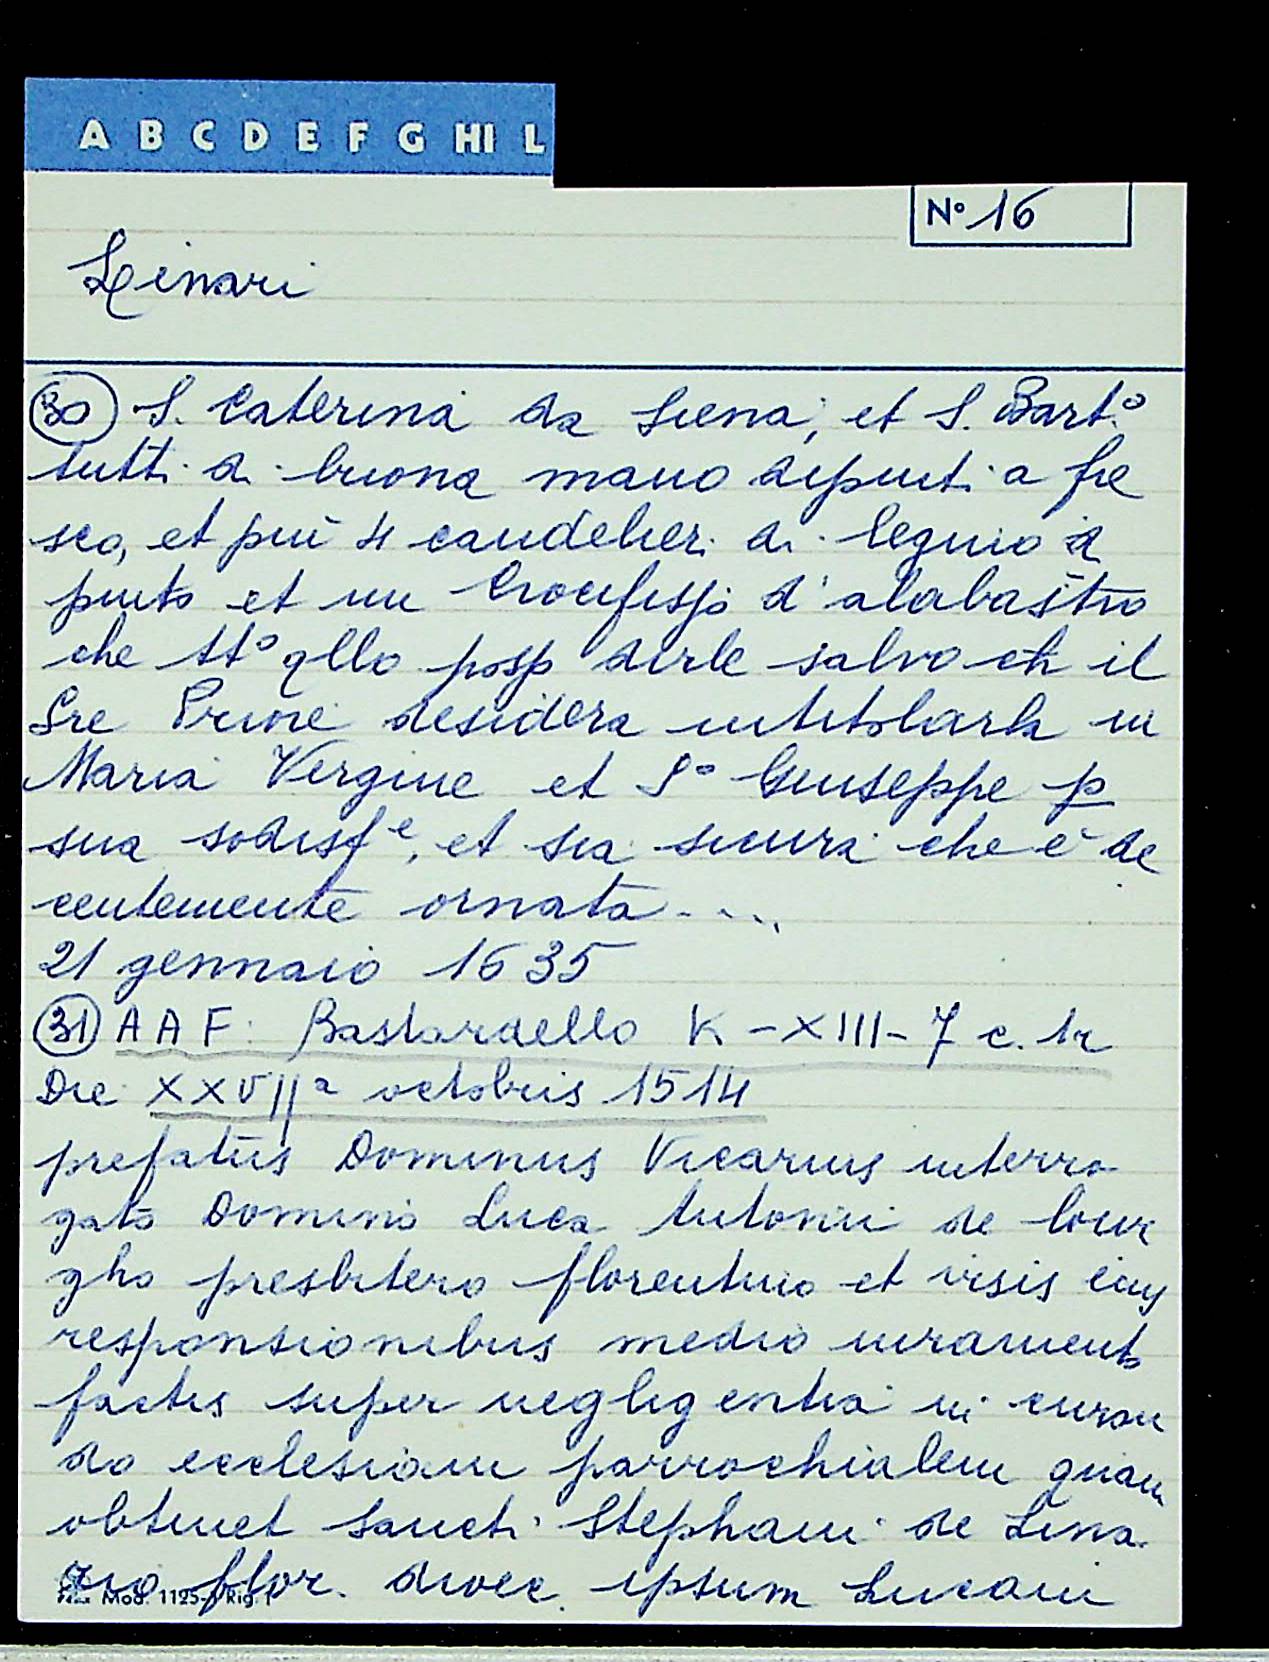 A B C D E F G HI L
Nº 16
Linari
30 S. Caterina da Siena, et S. Bart.º
tutti di buona mano dipinti a fre
sco, et più 4 candelieri di legnio di
pinto et un Crocifisso d'alabastro
che tt.º qllo posso dirle salvo ch il
Sre Priore desidera intitolarla in
Maria Vergine et Sº Giuseppe p
sua sodisf.e, et sia sicura che è de
centemente ornata ....
21 gennaio 1635
31 A A F: Bastardello K - XIII - 7 c. 1r
Die XXVIIª octobris 1514
prefatus Dominus Vicarius interro
gato Domino Luca Antonii de
gho presbitero florentino et visis eius
responsionibus medio iuramento
factis super negligentia in curan
do ecclesiam parrochialem quam
obtinet Sancti Stephani de Lina
rio flor. dioec. ipsum Lucam
Mod. 1125-Rig.1